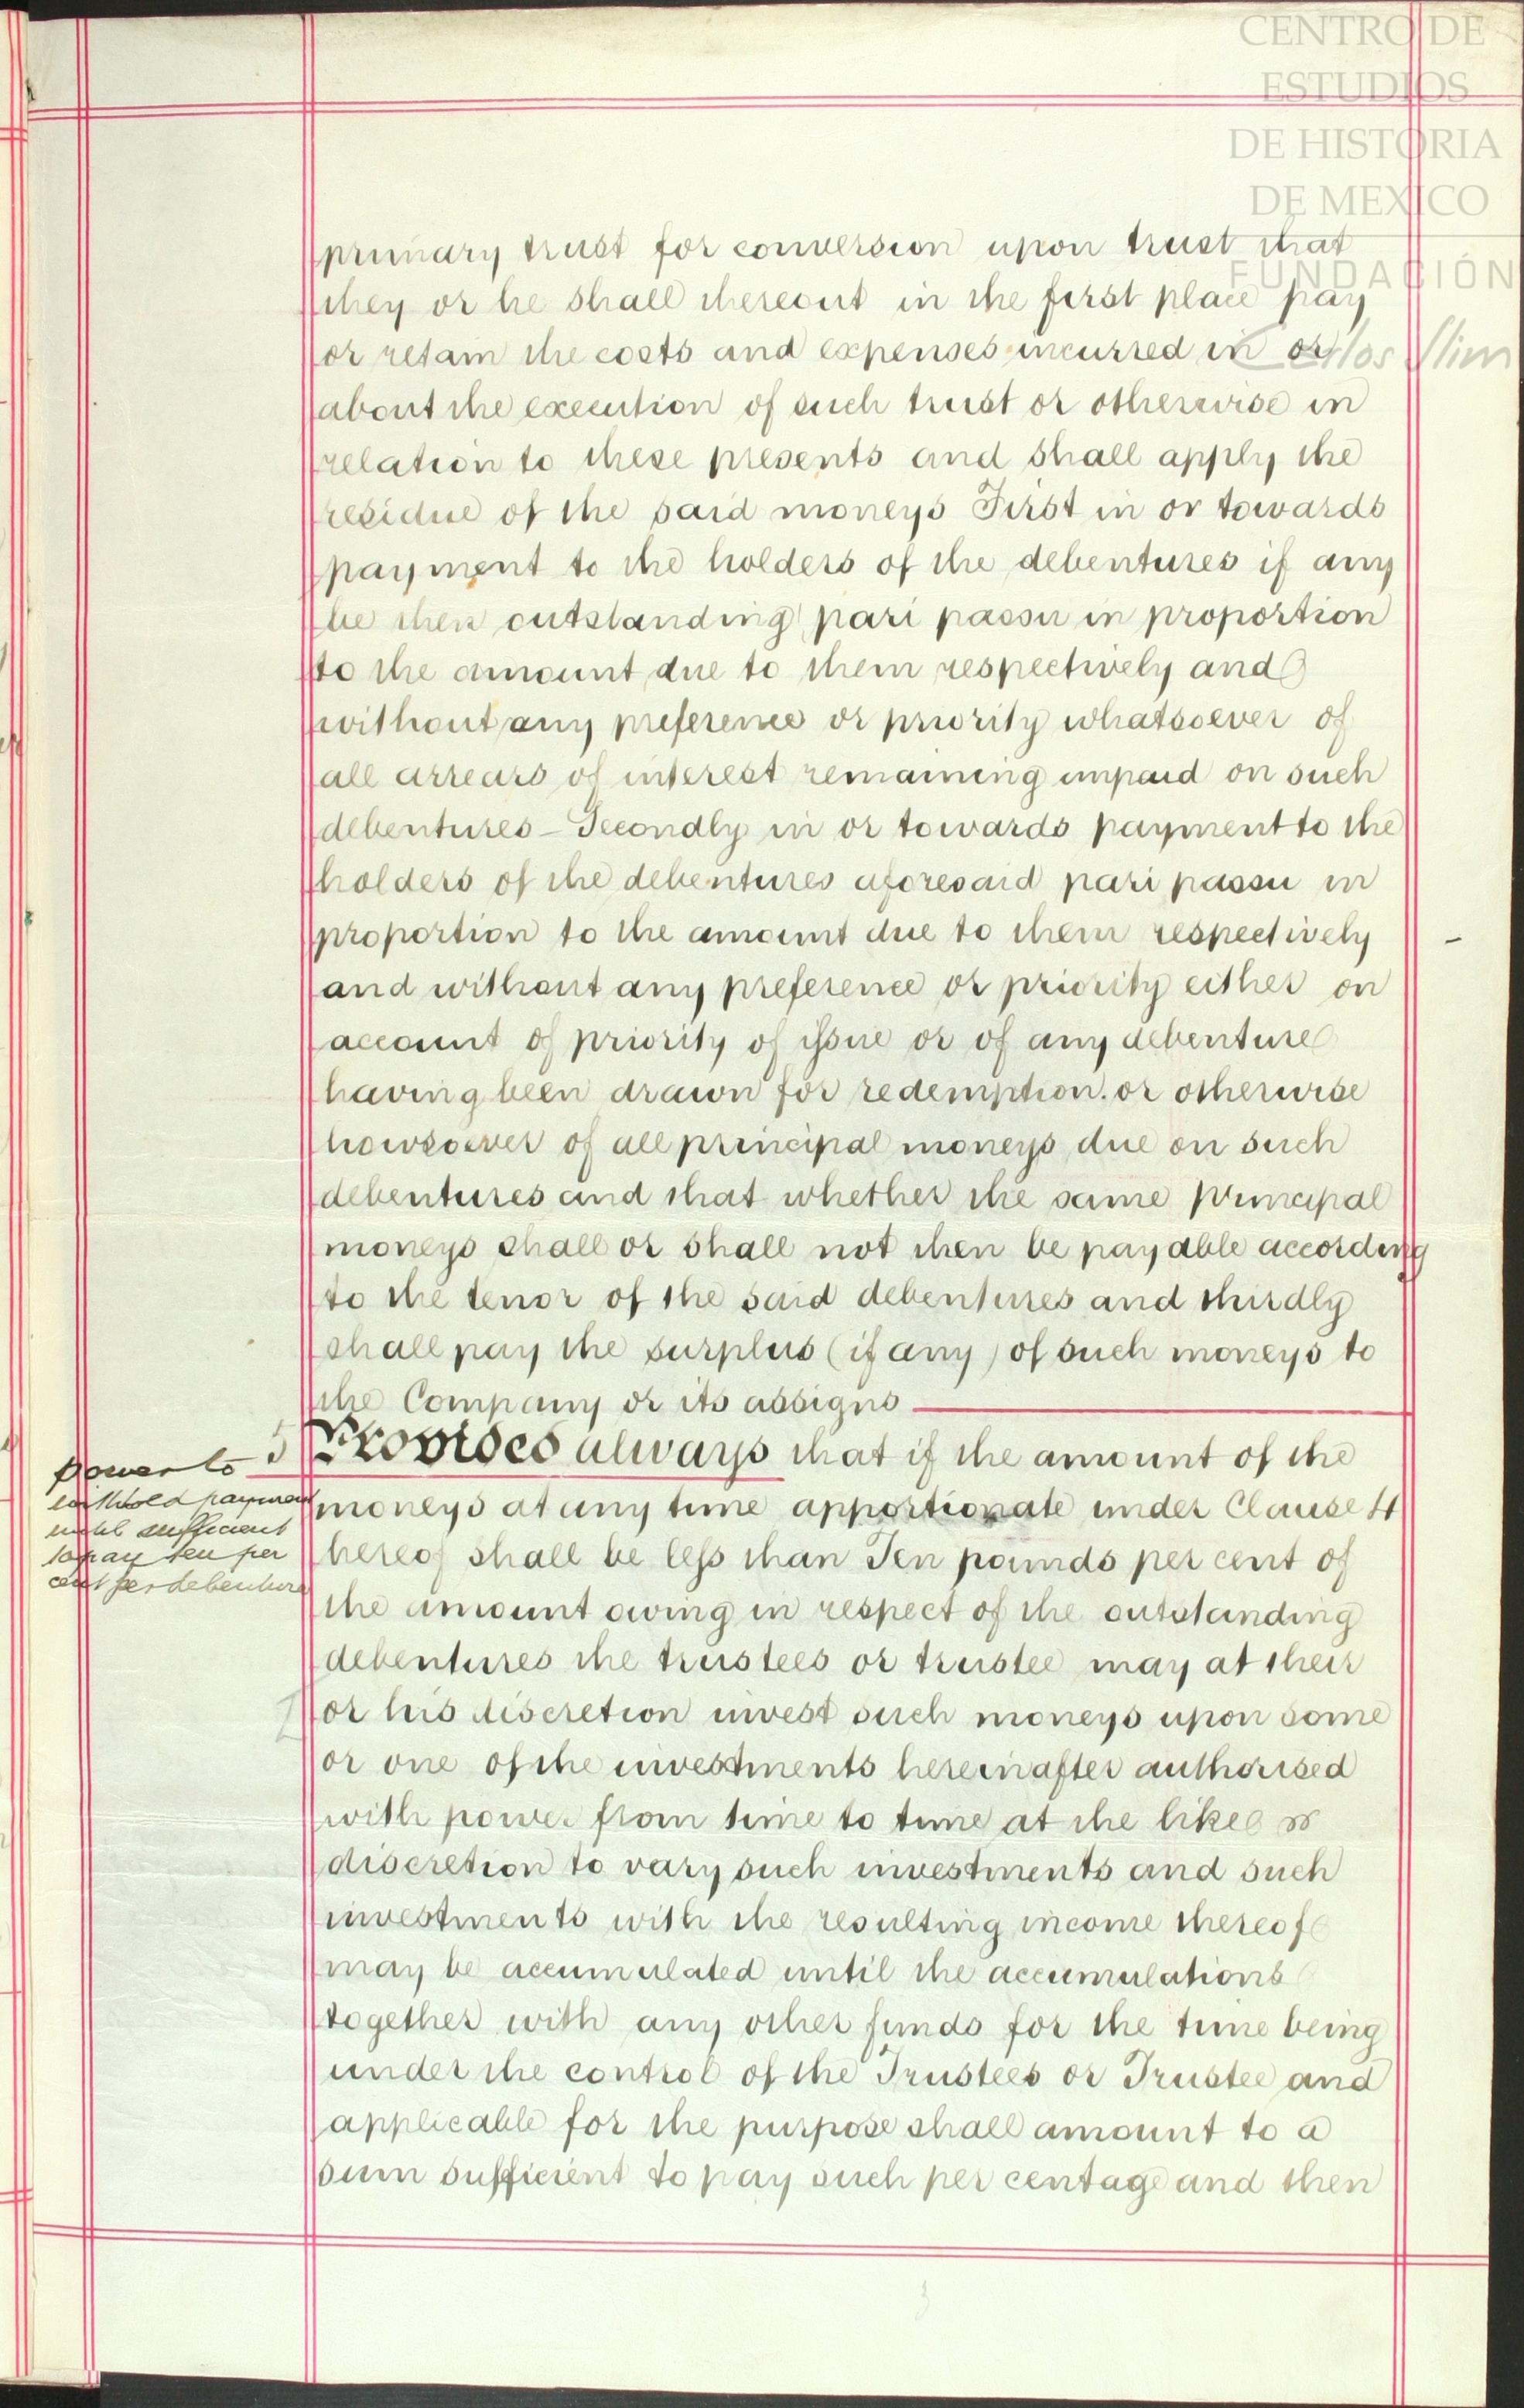 CENTRO DE
ESTUDIOS
DE HISTORIA
DE MEXICO
FUNDACIÓN
Carlos Slim
primary trust for conversion upon trust that
they or he shall thereout in the first place pay
or retain the costs and expenses incurred in or
about the execution of such trust or otherwise in
relation to these presents and shall apply the
residue of the said moneys First in or towards
payment to the holders of the debentures if any
be then outstanding pari passu in proportion
to the amount due to them respectively and
without any preference or priority whatsoever of
all arrears of interest remaining unpaid on such
debentures - Secondly in or towards payment to the
holders of the debentures aforesaid pari passu in
proportion to the amount due to them respectively
and without any preference or priority either on
account of priority of issue or of any debenture
having been drawn for redemption or otherwise
howsoever of all principal moneys due on such
debentures and that whether the same principal
moneys shall or shall not then be payable according
to the tenor of the said debentures and thirdly
shall pay the surplus (if any) of such moneys to
the Company or its assigns
5 Provided always that if the amount of the
moneys at any time apportionate under Clause 4
hereof shall be less than Ten pounds per cent of
the amount owing in respect of the outstanding
debentures the trustees or trustee may at their
or his discretion invest such moneys upon some
or one of the investments hereinafter authorised
with power from time to time at the like
discretion to vary such investments and such
investments with the resulting income thereof
may be accumulated until the accumulations
together with any other funds for the time being
under the control of the Trustees or Trustee and
applicable for the purpose shall amount to a
sum sufficient to pay such per centage and then
power to
withhold payment
until sufficient
to pay ten per
cent per debenture
3